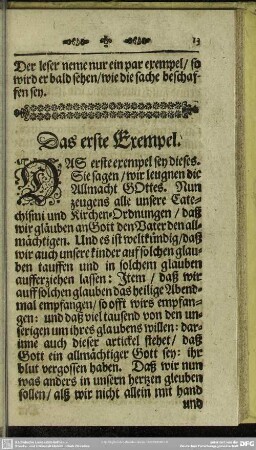 13
Der leser neme nur ein par exempel / so
wird er bald sehen / wie die sache beschaf-
fen sey.
Das erste Exempel.
DAS erste exempel sey dieses.
Sie sagen / wir leugnen die
Allmacht GOttes. Nun
zeugens alle unsere Cate-
chismi und Kirchen-Ordnungen / daß
wir gläuben an Gott den Vater den all-
mächtigen. Und es ist weltkündig / daß
wir auch unsere kinder auff solchen glau-
ben tauffen und in solchem glauben
aufferziehen lassen: Item / daß wir
auff solchen glauben das heilige Abend-
mal empfangen / so offt wirs empfan-
gen: und daß viel tausend von den un-
serigen um ihres glaubens willen: dar-
inne auch dieser artickel stehet / daß
Gott ein allmächtiger Gott sey: ihr
blut vergossen haben. Daß wir nun
was anders in unsern hertzen gleuben
sollen / alß wir nicht allein mit hand
und